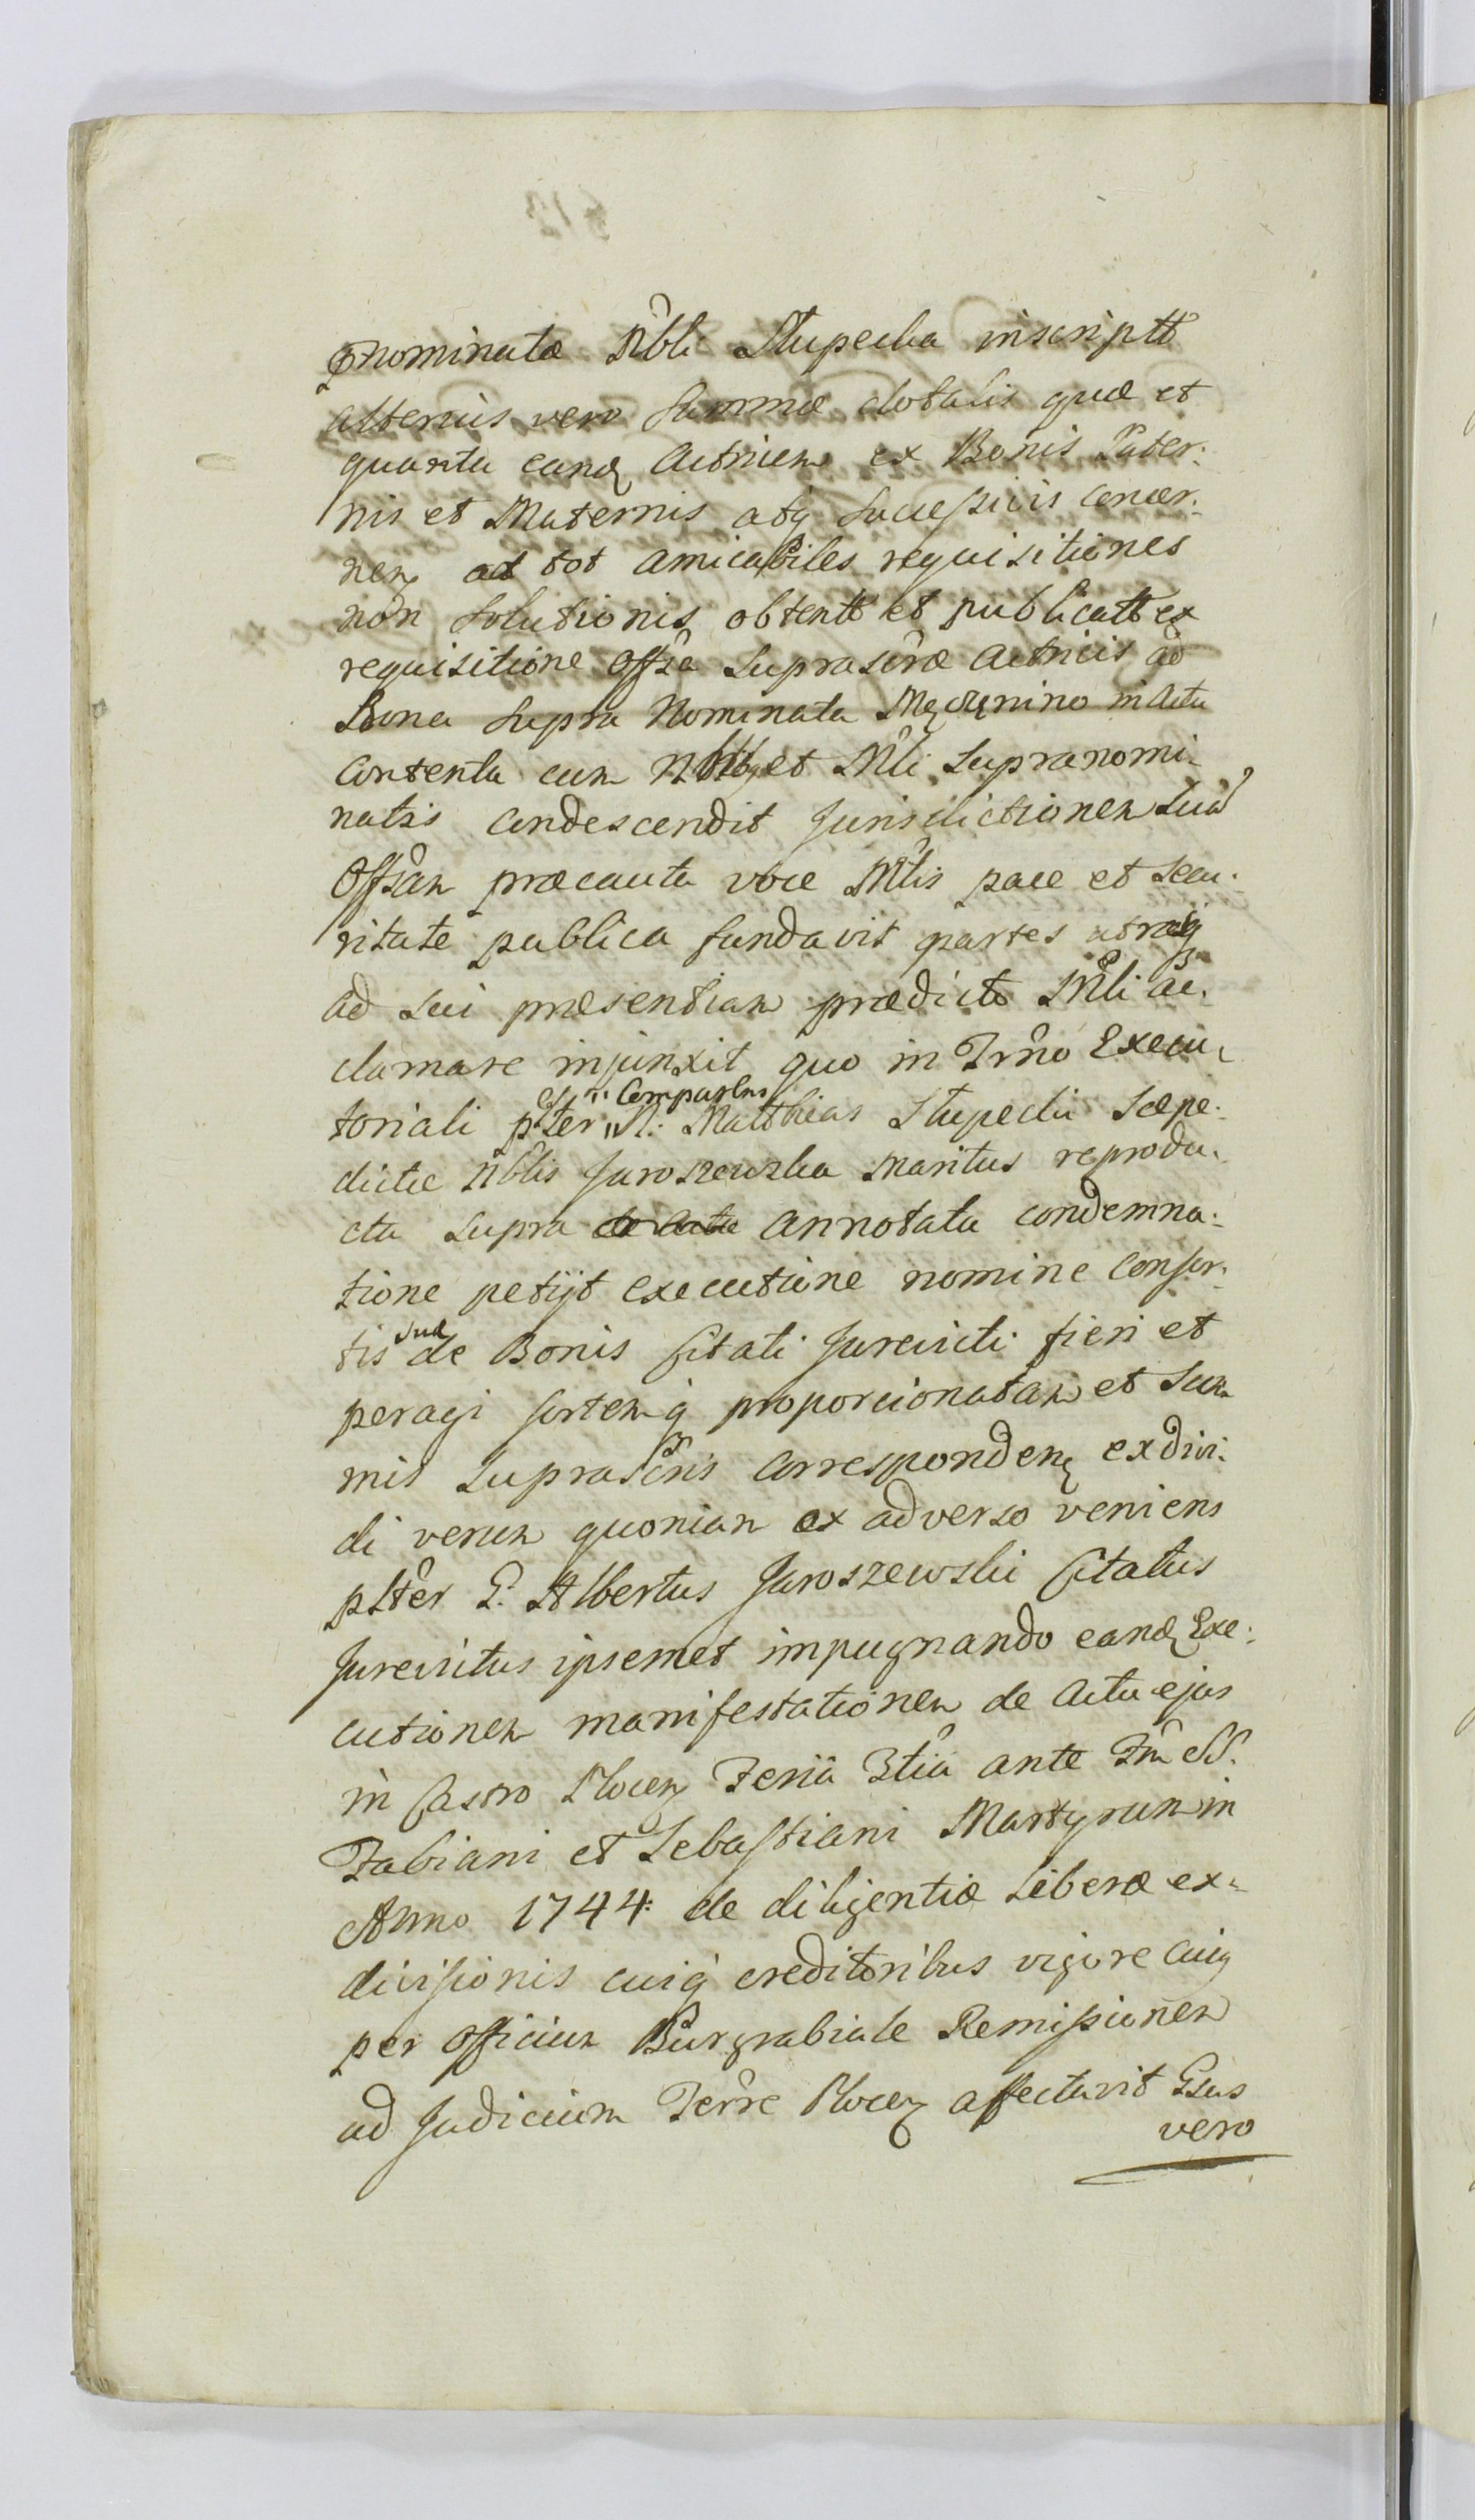 pnominatæ Nbli Słupecka inscriptt
alterius vero summæ dotalis quæ et
quanta eand Actricem ex Bonis Pater:
nis et Maternis atq Successivis concer:
nen ad tot amicabiles requisitiones
non solutionis obtentt et publicatt ex
requisitione Offsa Suprascræ Actricis ad
Bona supra Nominata Męczenino in Actu
Contenta cum Nblibq et Mli supranomi-
natis condescendit Jurisdictionem Suã
Offsam præcauta voce Mlis pace et secu:
ritate publica fundavit partes utrasq
ad sui præsentiam prædicto Mli ac:
clamare injunxit quo in Trno Execu:
toriali pster Comparens N: Matthias Słupecki Sæpe:
dictæ Nblis Jaroszewska Maritus reprodu:
cta supra de Actu annotata condemna:
tione petijt executione nomine Consor:
tis suæ de Bonis Citati Jurevicti fieri et
peragi sortemq proporcionatam et Sum
mis Suprascris Corresponden exdivi:
di verum quoniam ex adverso veniens
plter G. Albertus Jaroszewski Citatus
Jurevictus ipsemet impugnando eand Exe:
cutionem manifestationem de Actu ejus
in Castro Plocen Feriâ 3tiâ ante Fm SS.
Fabiani et Sebastiani Martyrum in
Anno 1744: de diligentiæ Liberæ ex:
divisionis cuiq creditoribus vigore cuiq
per Officium Burgrabiale Remissionem
ad Judicium Terre Plocen affectavit Gsus
vero